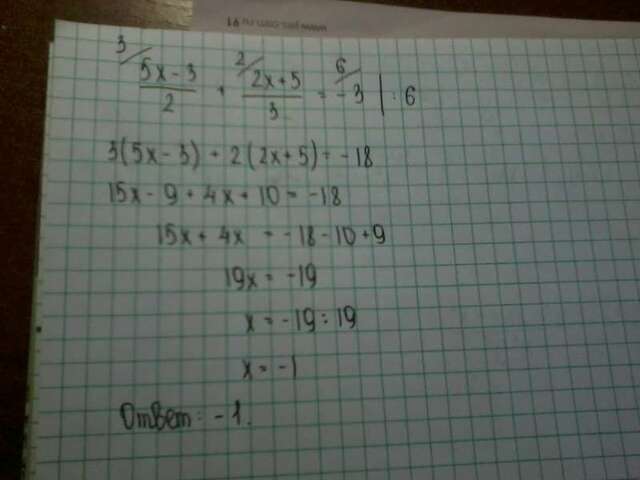 www.yes.com.ru 91
3/ (5x-3)/2 + 2/ (2x+5)/3 = 6/ -3 | : 6
3(5x-3) + 2(2x+5) = -18
15x - 9 + 4x + 10 = -18
15x + 4x = -18 - 10 + 9
19x = -19
x = -19 : 19
x = -1
Ответ: -1.